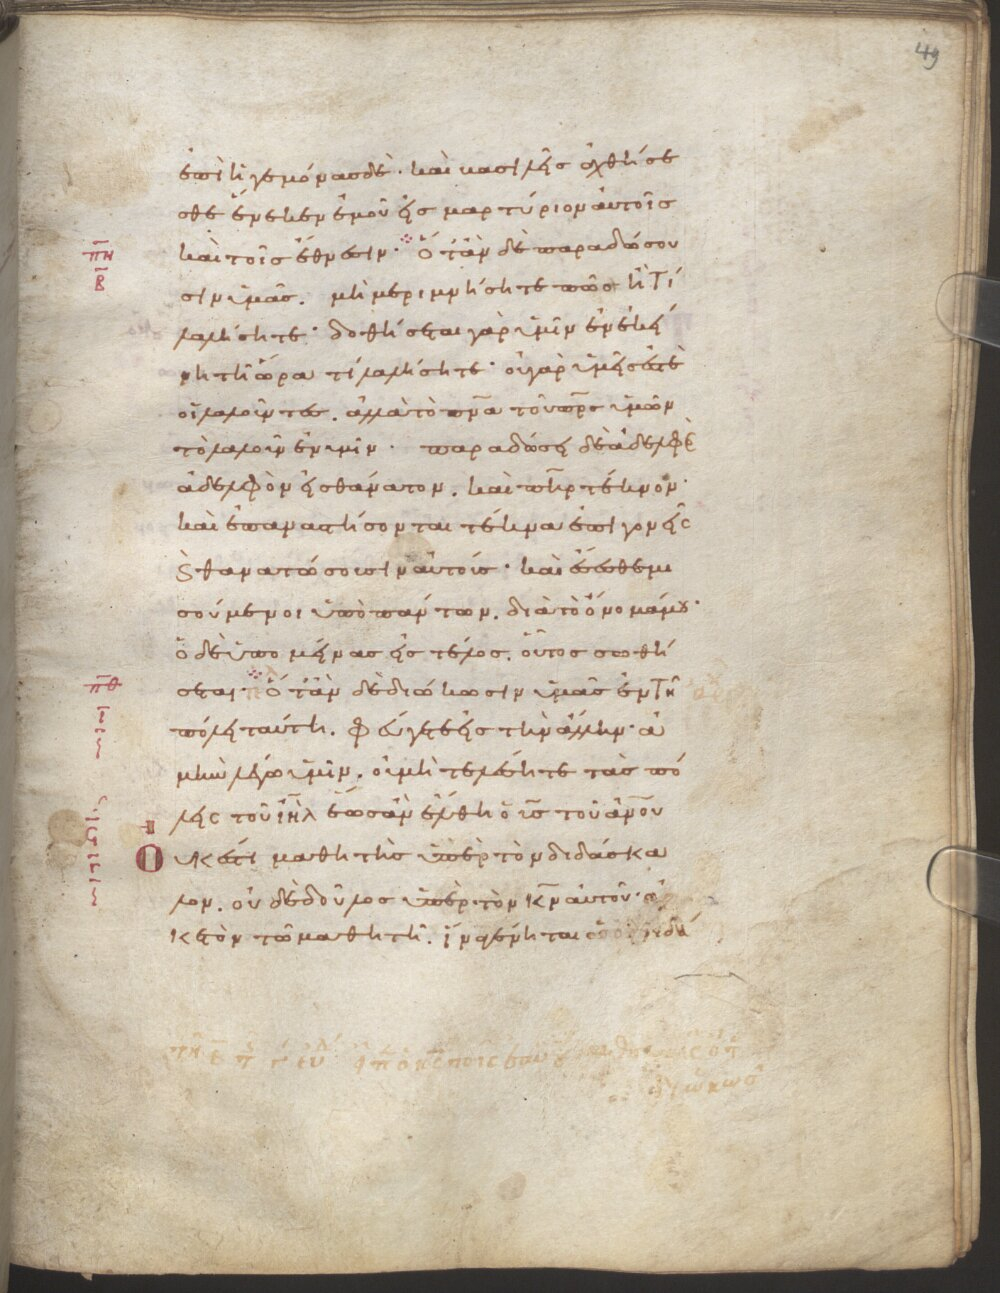 49
ἐπὶ ἡγεμόνας δὲ · καὶ βασιλεῖς ἀχθήσε
σθε ἕνεκεν ἐμοῦ εἰς μαρτύριον αὐτοῖς
καὶ τοῖς ἔθνεσιν · Ὅταν δὲ παραδώσου
σιν ὑμᾶς . μὴ μεριμνήσητε πῶς ἢ τί
λαλήσητε · δοθήσεται γὰρ ὑμῖν ἐν ἐκεί
νη τῆ ὥρα τί λαλήσητε · οὐ γὰρ ὑμεῖς ἐστὲ
οἱ λαλοῦντες . ἀλλὰ τὸ πνα τοῦ πρς ὑμῶν
τὸ λαλοῦν ἐν ὑμῖν · παραδώσει δὲ ἀδελφὸς
ἀδελφὸν εἰς θάνατον . καὶ πηρ τέκνον ·
καὶ ἐπαναστήσονται τέκνα ἐπὶ γονεῖς
ϗ θανατώσουσιν αὐτούς · καὶ ἔσεσθε μι
σούμενοι ὑπὸ πάντων . διὰ τὸ ὄνομά μου ·
ὁ δὲ ὑπομείνας εἰς τέλος . οὗτος σωθή
σεται · Ὅταν δὲ διώκωσιν ὑμᾶς ἐν τῆ
πόλει ταύτη . φεύγετε εἰς τὴν ἄλλην · ἀ
μὴν λέγω ὑμῖν . οὐ μὴ τελέσητε τὰς πό
λεις τοῦ ιηλ ἕως ἂν ἔλθη ὁ υς τοῦ ανου
Οὐκ ἔστι μαθητὴς ὑπὲρ τὸν διδάσκα
λον . οὐδὲ δοῦλος ὑπὲρ τὸν κν αὐτοῦ · ἀρ
κετὸν τῶ μαθητῆ . ἵνα γένηται
πη
β
πθ
ι